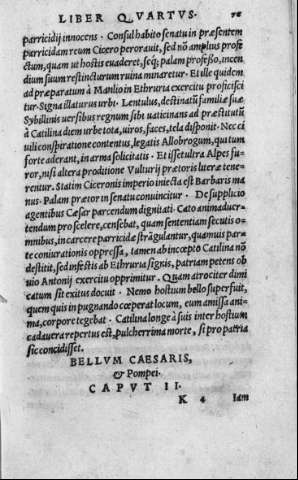 LIBER QVARTVS. 76
parricidij innocens · Consul habito senatu in præsentem
parricidam reum Cicero perorauit, sed nō amplius profe
ctum, quam ut hostis euaderet, seq; palam profeßo, incen
dium suum restincturum ruina minaretur. Et ille quidem
ad præparatum à Manlio in Ethruria exercitū proficisci
tur. Signa illaturus urbi · Lentulus, destinatū familiæ suæ
Sybillinis uersibus regnum sibi uaticinans ad præstitutū
à Catilina diem urbe tota, uiros, faces, tela disponit · Nec ci
uili conspiratione contentus, legatis Allobrogum, qui tum
forte aderant, in arma solicitatis · Et isset ultra Alpes fu
ror, nisi altera proditione Vulturij prætoris literæ tene
rentur. Statim Ciceronis imperio iniecta est Barbaris ma
nus · Palam prætor in senatu conuincitur · De supplicio
agentibus Cæsar parcendum dignitati · Cato animaduer
tendum pro scelere, censebat, quam sententiam secutis o
mnibus, in carcere parricidæ strāgulantur, quamuis par
te coniurationis oppressa, tamen ab incœpto Catilina nō
destitit, sed infestis ab Ethruria signis, patriam petens ob
uio Antonij exercitu opprimitur · Quam atrociter dimi
catum sit exitus docuit · Nemo hostium bello superfuit,
quem quis in pugnando cœperat locum, eum amissa ani
ma, corpore tegebat · Catilina longè à suis inter hostium
cadauera repertus est, pulcherrima morte, si pro patria
sic concidisset.
BELLVM CAESARIS,
& Pompei.
CAPVT II.
K 4 Iam